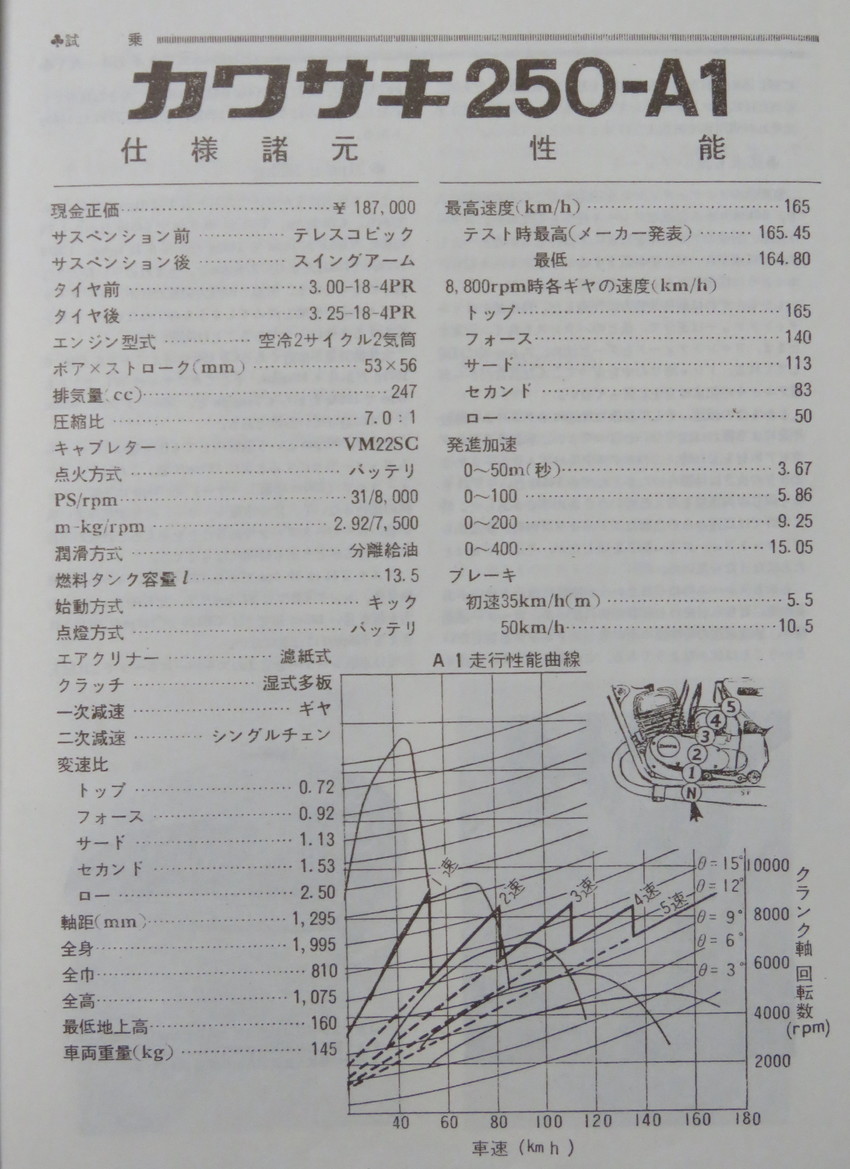 ♣試 乗
カワサキ250-A1
仕様諸元
現金正価……¥ 187,000
サスペンション前……テレスコピック
サスペンション後……スイングアーム
タイヤ前……3.00-18-4PR
タイヤ後……3.25-18-4PR
エンジン型式……空冷2サイクル2気筒
ボア×ストローク(mm)……53×56
排気量(cc)……247
圧縮比……7.0:1
キャブレター……VM22SC
点火方式……バッテリ
PS/rpm……31/8,000
m-kg/rpm……2.92/7,500
潤滑方式……分離給油
燃料タンク容量l……13.5
始動方式……キック
点燈方式……バッテリ
エアクリナー……濾紙式
クラッチ……湿式多板
一次減速……ギヤ
二次減速……シングルチェン
変速比
トップ……0.72
フォース……0.92
サード……1.13
セカンド……1.53
ロー……2.50
軸距(mm)……1,295
全身……1,995
全巾……810
全高……1,075
最低地上高……160
車両重量(kg)……145
性能
最高速度(km/h)……165
テスト時最高(メーカー発表)……165.45
最低……164.80
8,800rpm時各ギヤの速度(km/h)
トップ……165
フォース……140
サード……113
セカンド……83
ロー……50
発進加速
0〜50m(秒)……3.67
0〜100……5.86
0〜200……9.25
0〜400……15.05
ブレーキ
初速35km/h(m)……5.5
50km/h……10.5
A1走行性能曲線
5
4
3
2
1
N
1速
2速
3速
4速
5速
θ=15°
θ=12°
θ=9°
θ=6°
θ=3°
10000
8000
6000
4000
2000
クランク軸回転数
(rpm)
40 60 80 100 120 140 160 180
車速(kmh)